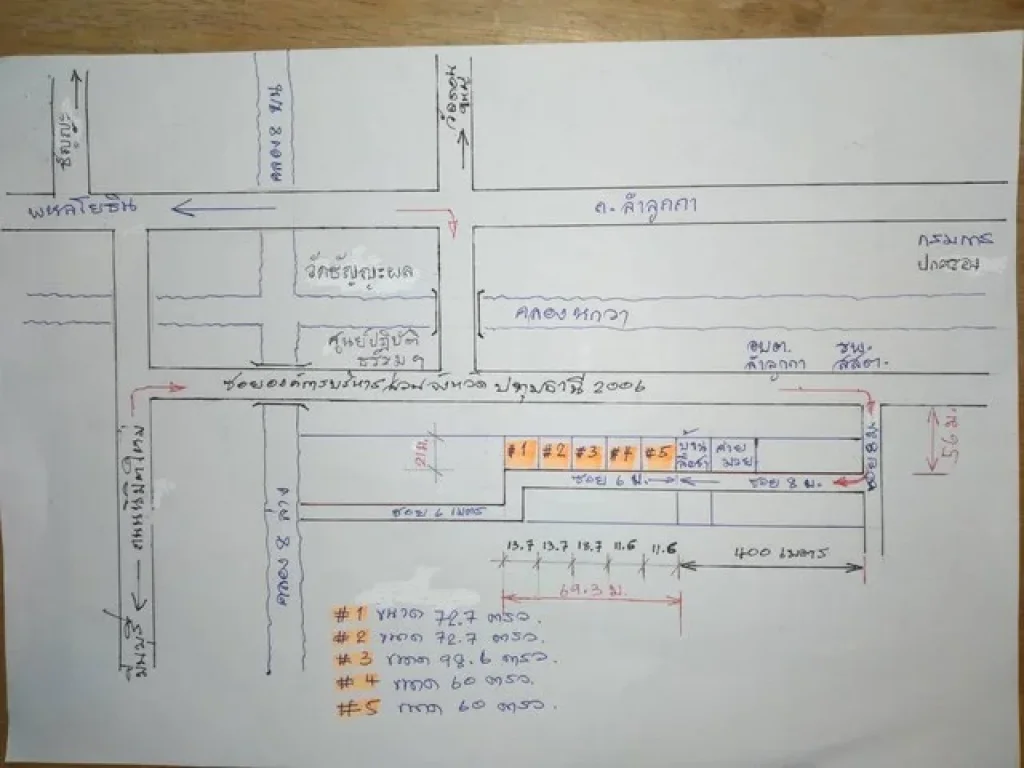 ธัญญะ
คลอง 8 บน
พหลโยธิน
ถ. ลำลูกกา
กรมการ
ปกครอง
วัดธัญญะผล
คลองหกวา
ศูนย์ปฏิบัติ
ธรรมฯ
อบต.
ลำลูกกา
รพ.
สสต.
ซอยองค์การบริหารส่วนจังหวัด ปทุมธานี 2006
#1
#2
#3
#4
#5
บ้าน
ค่าย
มวย
21 ม.
56 ม.
ซอย 8 ม.
ซอย 6 ม.
ซอย 8 ม.
ซอย 6 เมตร
ถนนนิมิตใหม่
มีนบุรี
คลอง 8 ล่าง
13.7
13.7
18.7
11.6
11.6
400 เมตร
69.3 ม.
#1 ขนาด 72.7 ตรว.
#2 ขนาด 72.7 ตรว.
#3 ขนาด 98.6 ตรว.
#4 ขนาด 60 ตรว.
#5 ขนาด 60 ตรว.